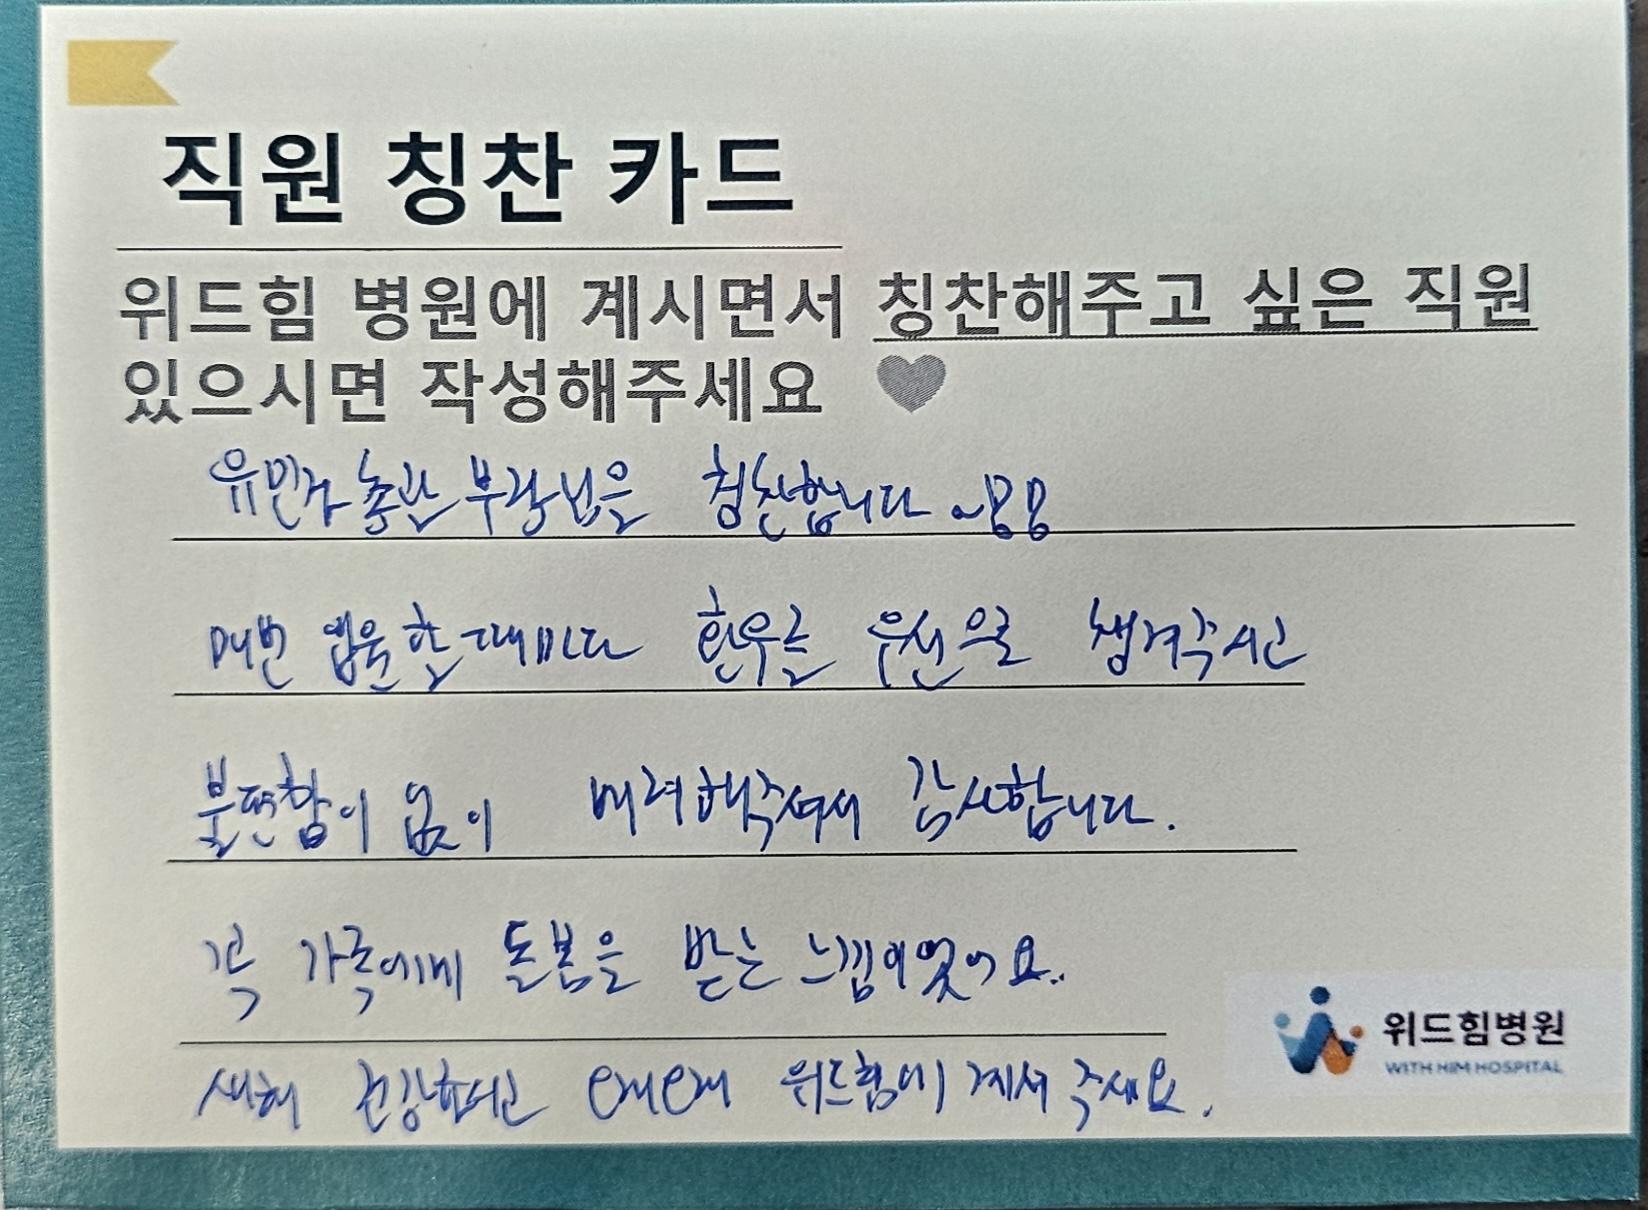 직원 칭찬 카드
위드힘 병원에 계시면서 칭찬해주고 싶은 직원
있으시면 작성해주세요
유민정 총괄 부장님을 칭찬합니다
매번 입원할때마다 환우를 우선으로 챙겨주시고
불편함이 없이 배려해주셔서 감사합니다.
꼭 가족에게 돌봄을 받는 느낌이었어요..
새해 건강하시고 오래오래 위드힘에 계셔 주세요.
위드힘병원
WITH HIM HOSPITAL